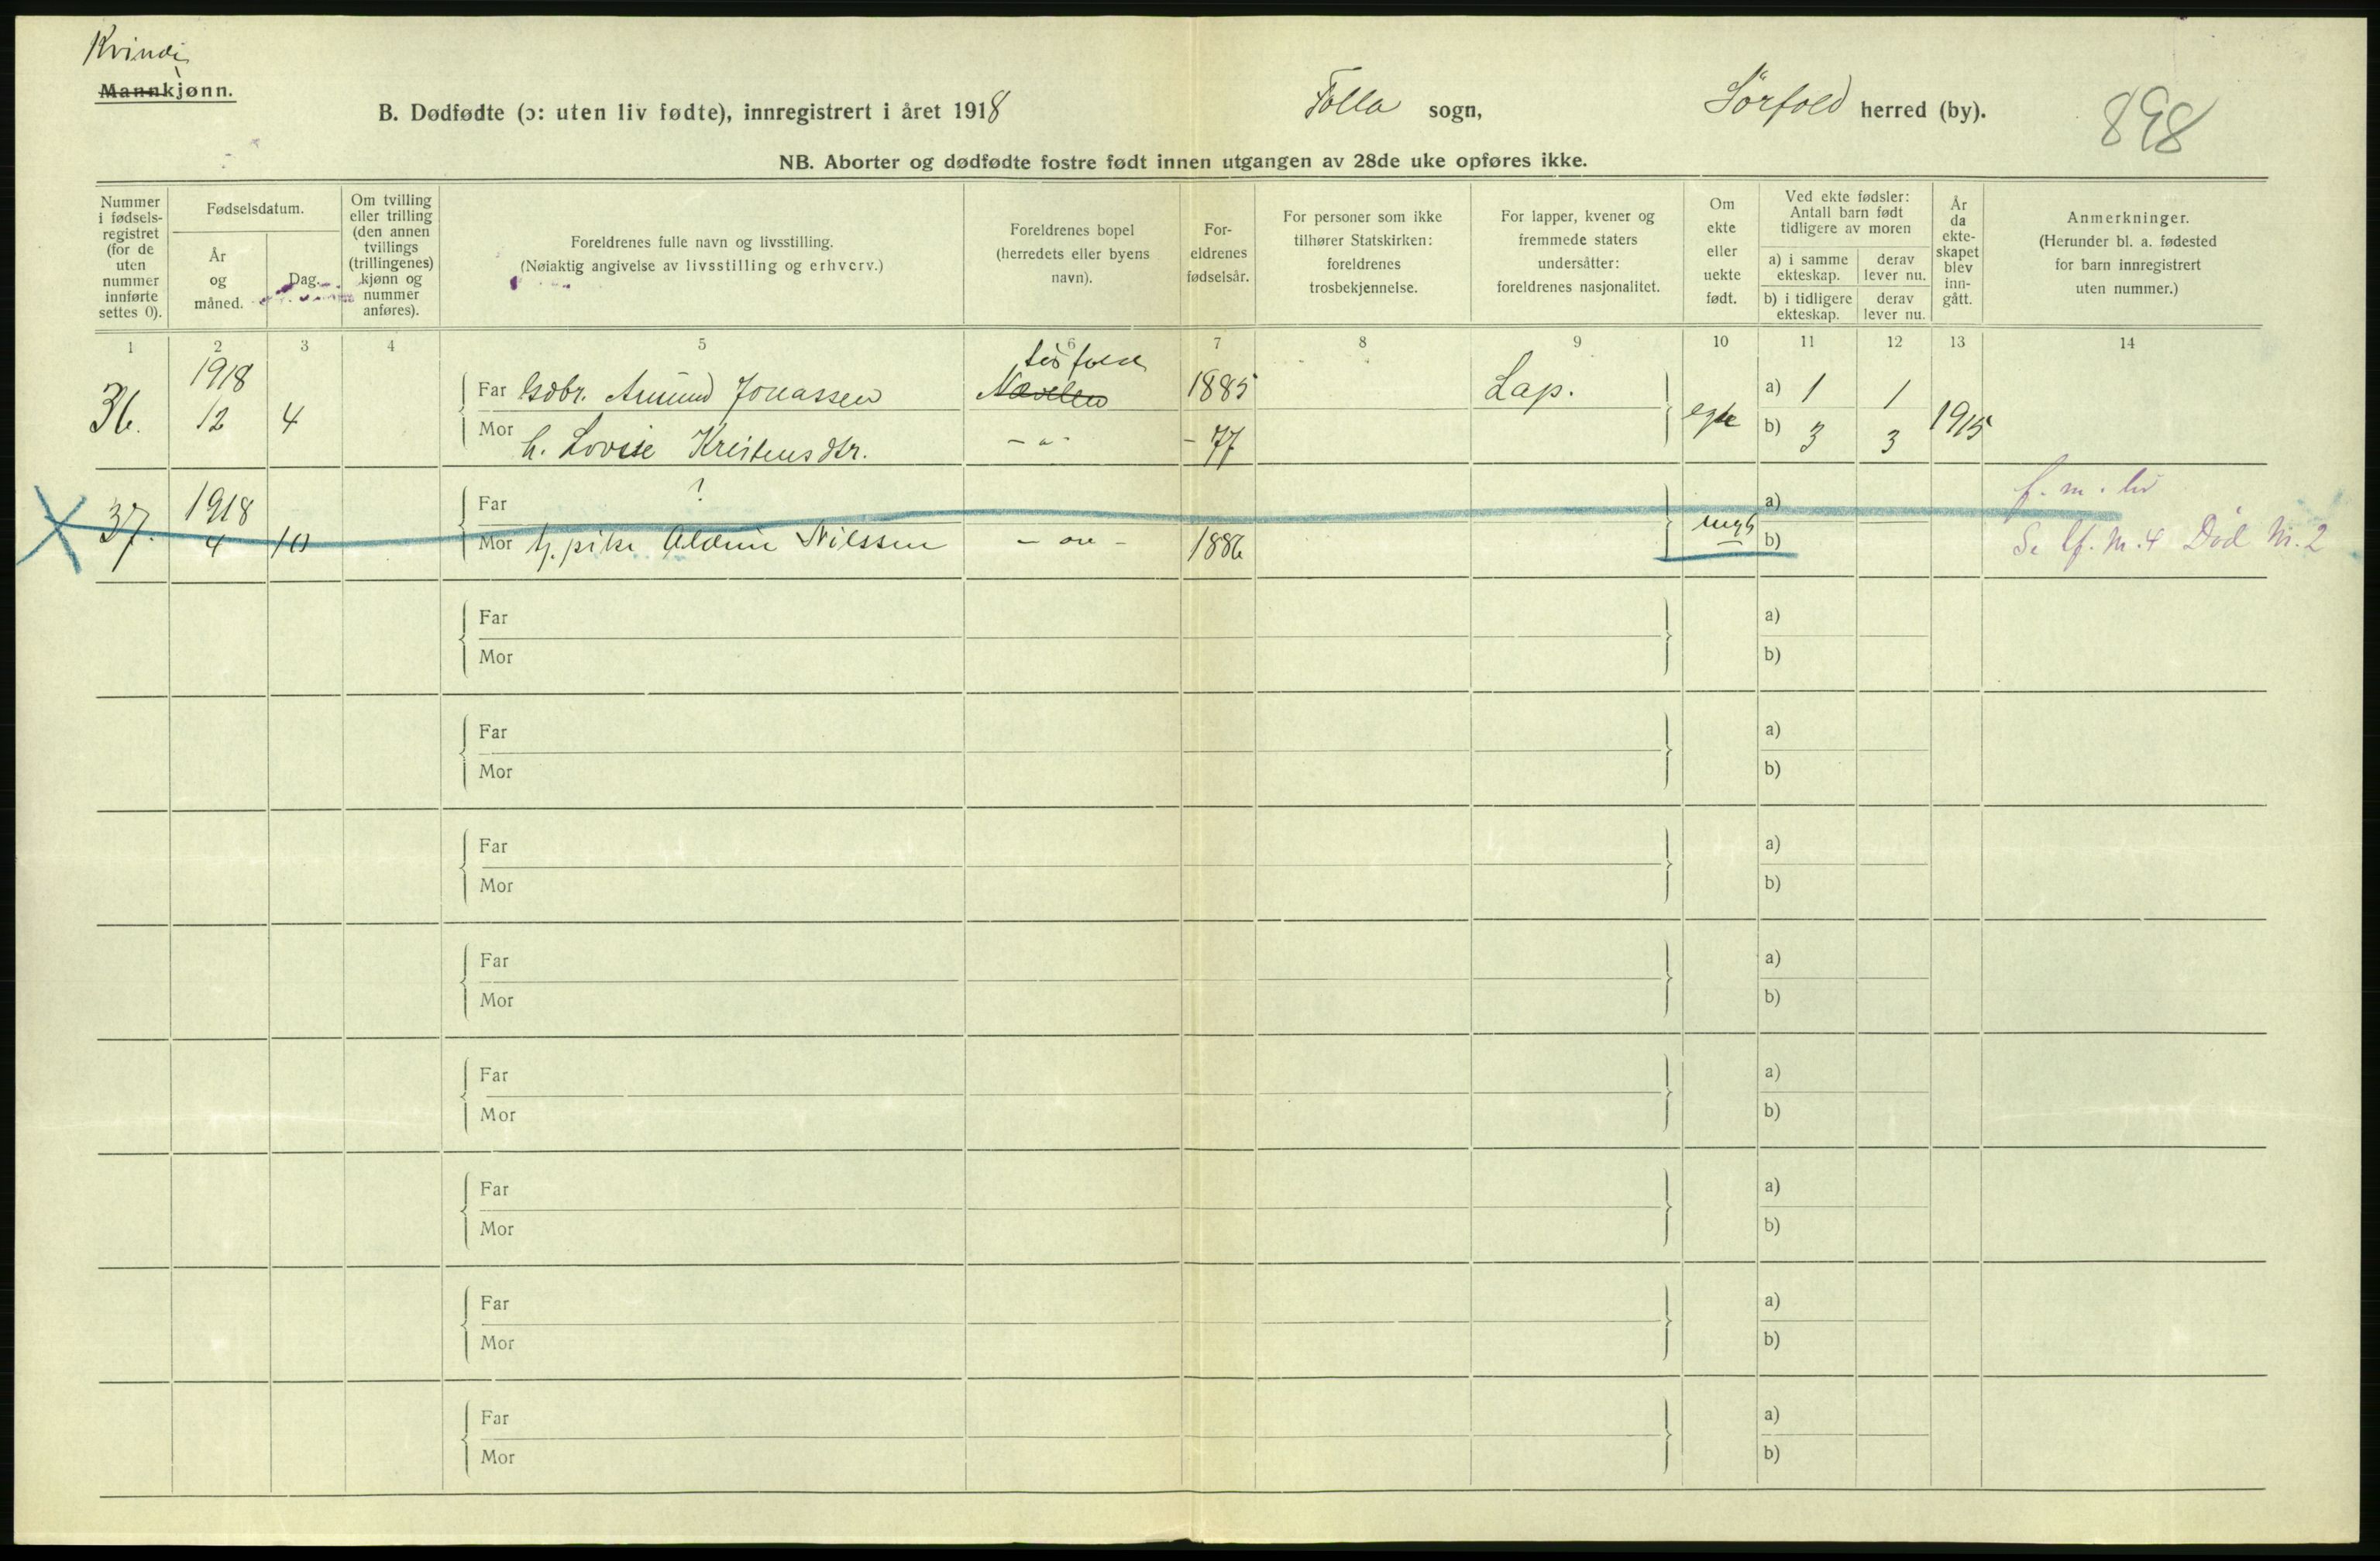 Kvinde
Mannkjønn.
B. Dødfødte (ɔ: uten liv fødte), innregistrert i året 1918 Folla sogn, Sørfold herred (by). 898
NB. Aborter og dødfødte fostre født innen utgangen av 28de uke opføres ikke.
Nummer i fødsels-registret (for de uten nummer innførte settes 0).
Fødselsdatum.
År og måned.
Dag.
Om tvilling eller trilling (den annen tvillings (trillingenes) kjønn og nummer anføres).
Foreldrenes fulle navn og livsstilling.
(Nøiaktig angivelse av livsstilling og erhverv.)
Foreldrenes bopel (herredets eller byens navn).
For-eldrenes fødselsår.
For personer som ikke tilhører Statskirken: foreldrenes trosbekjennelse.
For lapper, kvener og fremmede staters undersåtter: foreldrenes nasjonalitet.
Om ekte eller uekte født.
Ved ekte fødsler: Antall barn født tidligere av moren
a) i samme ekteskap.
derav lever nu.
b) i tidligere ekteskap.
derav lever nu.
År da ekte-skapet blev inn-gått.
Anmerkninger.
(Herunder bl. a. fødested for barn innregistrert uten nummer.)
1 2 3 4 5 6 7 8 9 10 11 12 13 14
36. 1918 12 4
Far Gdbr. Amund Jonassen 1885 Lap. a) 1 1
Mor h. Lovise Kristensdtr. - " - - 77 egte b) 3 3 1915
37. 1918 4 10
Far ? a) f. m. liv
Mor Nilssen 1886 b) Se lf. M. 4 Død M. 2
Far a)
Mor b)
Far a)
Mor b)
Far a)
Mor b)
Far a)
Mor b)
Far a)
Mor b)
Far a)
Mor b)
Far a)
Mor b)
Far a)
Mor b)